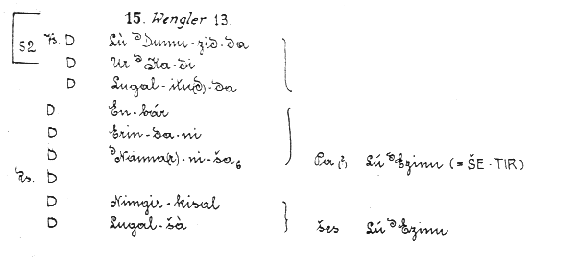 15. Wengler 13
52 Vs. D Lù ᵈDumu-zid-da
D Ur ᵈKa-di
D Lugal-iku(d)-da
D En-bár
D Erin-da-ni
D ᵈNanna(r)-ni-ša₆ Per (?) Lú ᵈEzinu (= ŠE-TIR)
Rs. D
D Nimgir-kisal
D Lugal-šà šeš Lú ᵈEzinu